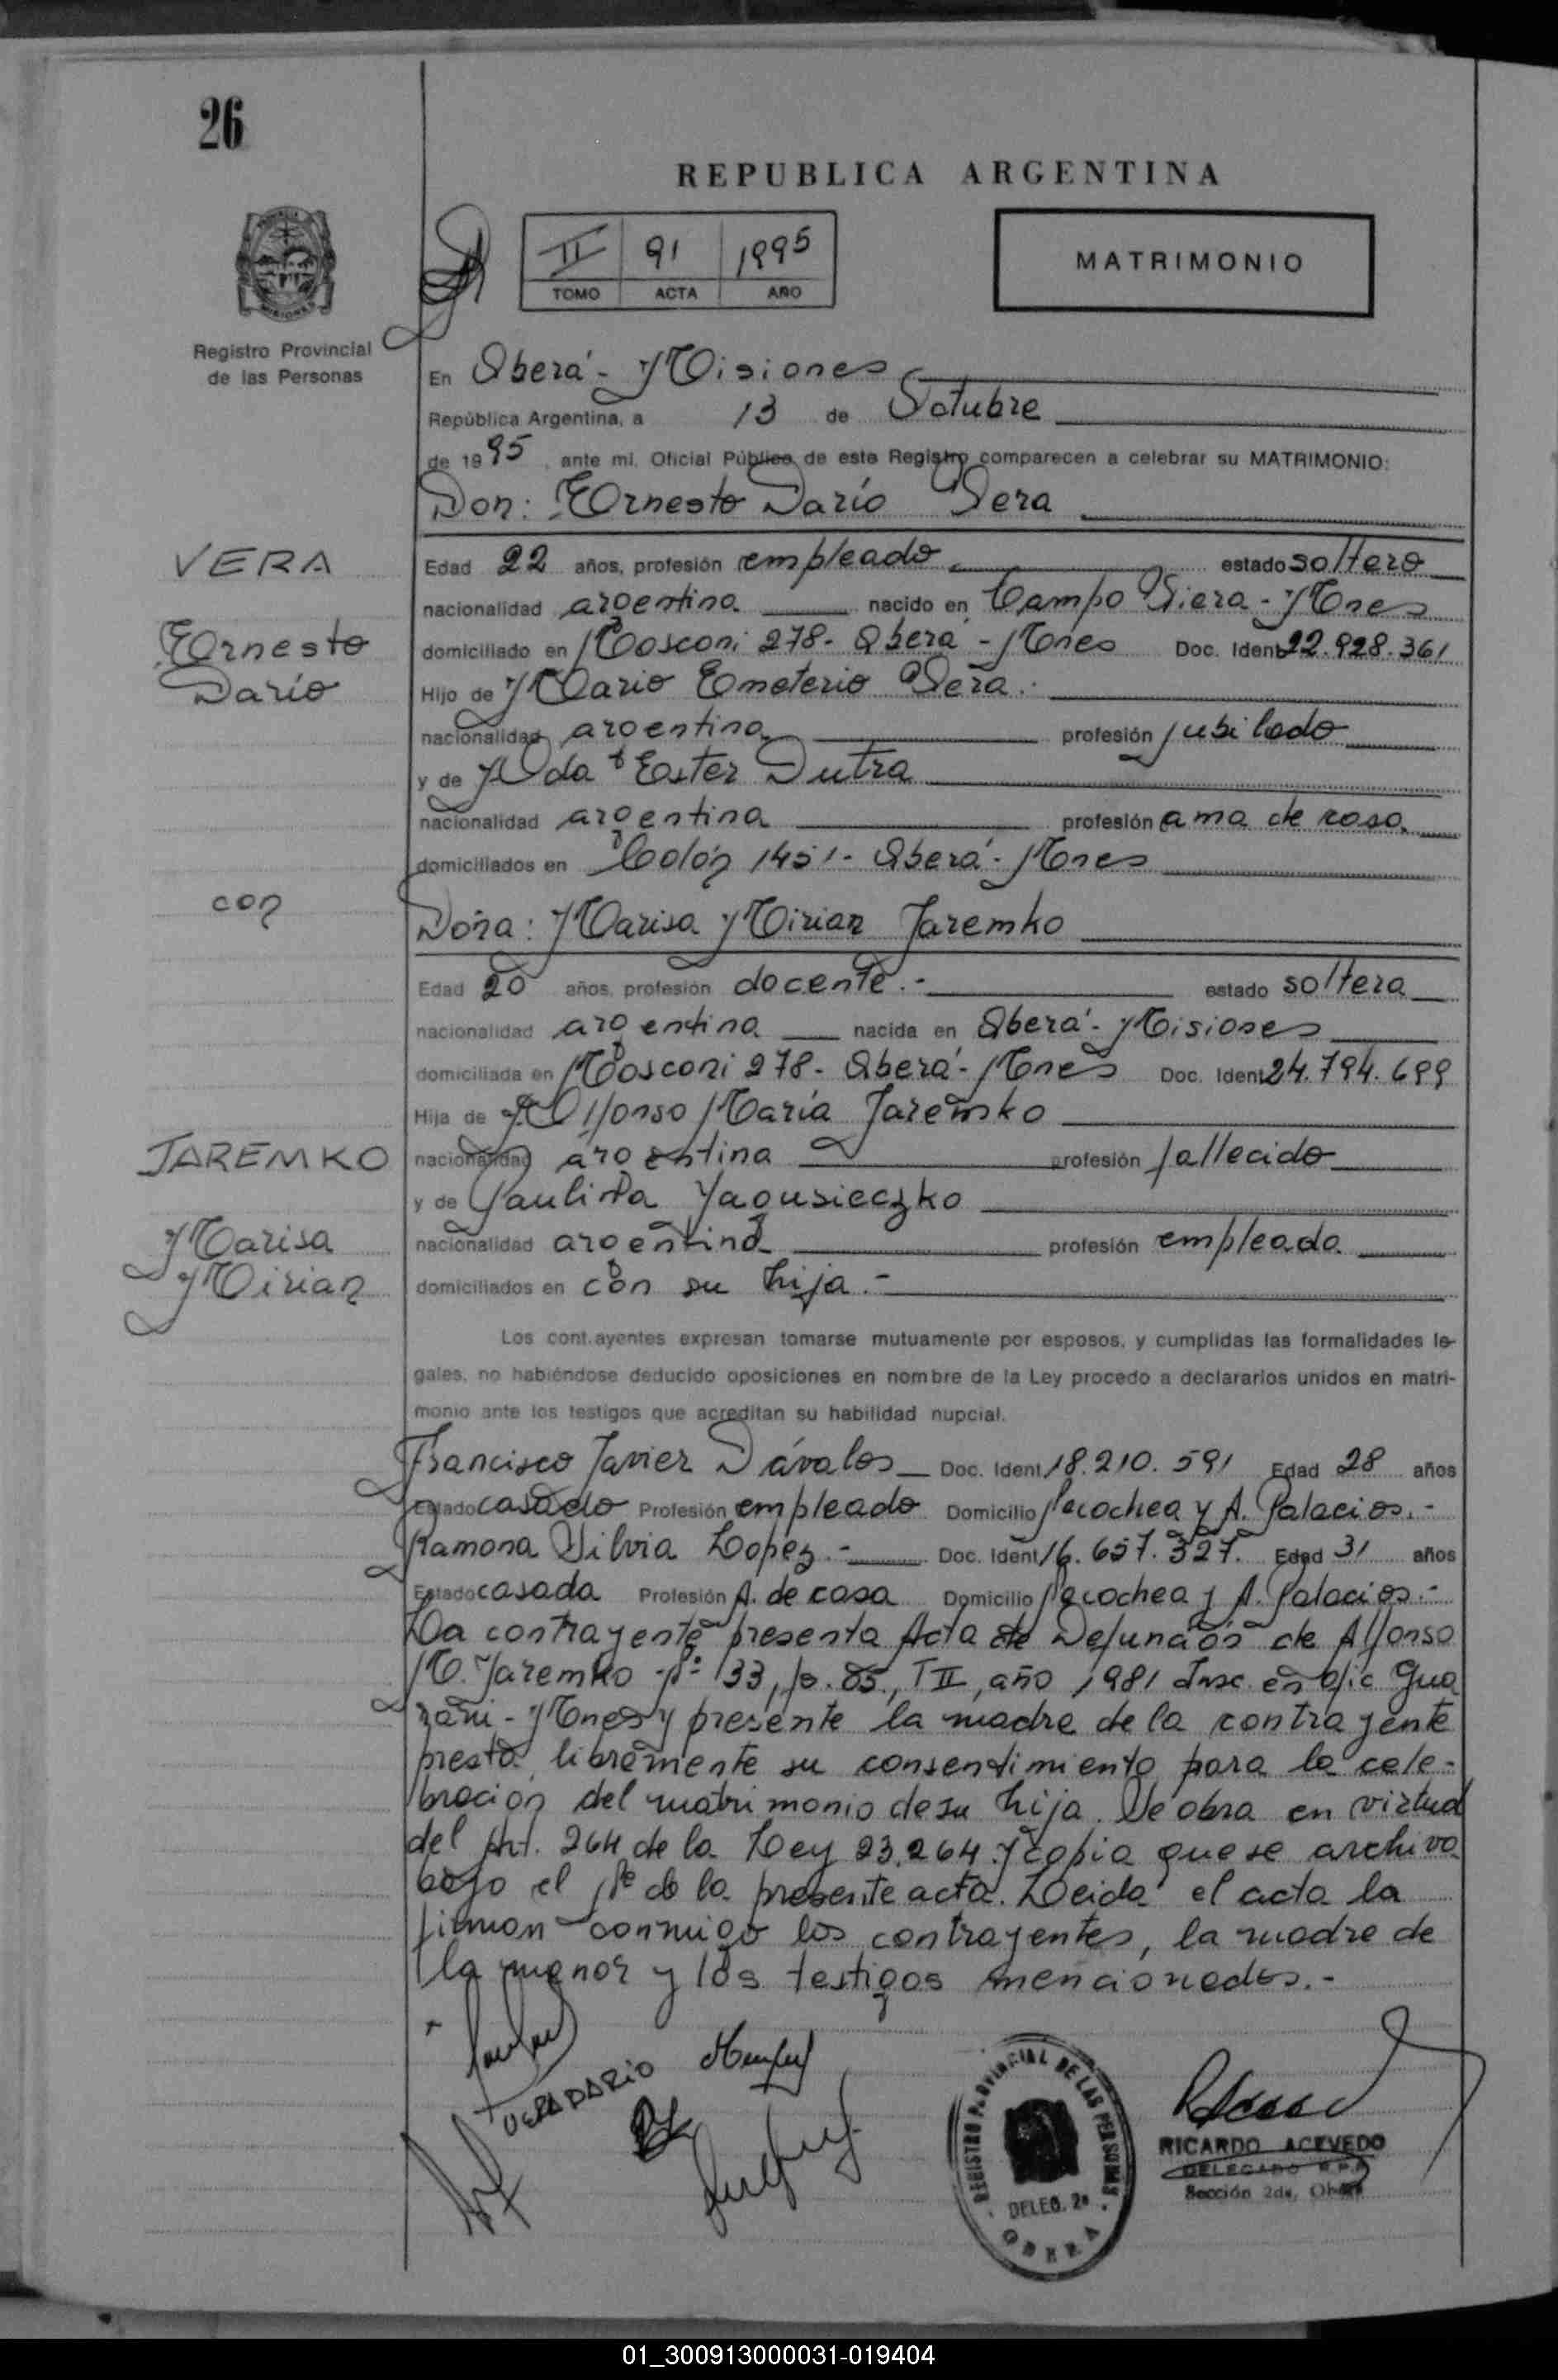 26
REPUBLICA ARGENTINA
II 91 1995
TOMO ACTA AÑO
MATRIMONIO
Registro Provincial
de las Personas
En Oberá - Misiones
República Argentina, a 13 de Octubre
de 1995, ante mi, Oficial Público de este Registro comparecen a celebrar su MATRIMONIO:
Don: Ernesto Darío Vera
VERA
Ernesto
Darío
Edad 22 años, profesión empleado estado soltero
nacionalidad argentina nacido en Campo Viera - Mnes
domiciliado en Mosconi 278 - Oberá - Mnes Doc. Ident 22.928.361
Hijo de Mario Emeterio Vera.
nacionalidad argentina profesión jubilado
y de Ada Ester Dutra
nacionalidad argentina profesión ama de casa
domiciliados en Colón 1451 - Oberá - Mnes
con
Doña: Marisa Mirian Jaremko
Edad 20 años, profesión docente.- estado soltera
nacionalidad argentina nacida en Oberá - Misiones
domiciliada en Mosconi 278 - Oberá - Mnes Doc. Ident 24.794.699
Hija de Alfonso María Jaremko
JAREMKO
Marisa
Mirian
nacionalidad argentina profesión fallecido
y de Paulina Yagusieczko
nacionalidad argentina profesión empleada
domiciliados en con su hija.-
Los cont.ayentes expresan tomarse mutuamente por esposos, y cumplidas las formalidades le-
gales, no habiéndose deducido oposiciones en nombre de la Ley procedo a declararlos unidos en matri-
monio ante los testigos que acreditan su habilidad nupcial.
Francisco Javier Dávalos Doc. Ident 18.210.591 Edad 28 años
Estado casado Profesión empleado Domicilio Necochea y A. Palacios.-
Ramona Silvia Lopez.- Doc. Ident 16.657.327. Edad 31 años
Estado casada Profesión A. de casa Domicilio Necochea y A. Palacios.-
La contrayente presenta Acta de Defunción de Alfonso
M. Jaremko Nº 133, fo. 85, T II, año 1981 Insc. en ofic Gua
raní - Mnes y presente la madre de la contrayente
presta libremente su consentimiento para la cele-
bración del matrimonio de su hija. Se obra en virtud
del Art. 264 de la Ley 23.264 y copia que se archiva
bajo el Nº de la presente acta. Leida el acta la
firman conmigo los contrayentes, la madre de
la menor y los testigos mencionados.-
VERA DARIO
REGISTRO PROVINCIAL DE LAS PERSONAS
DELEG. 2ª
OBERA
RICARDO ACEVEDO
DELEGADO R.P.P.
Sección 2da, Oberá
01_300913000031-019404